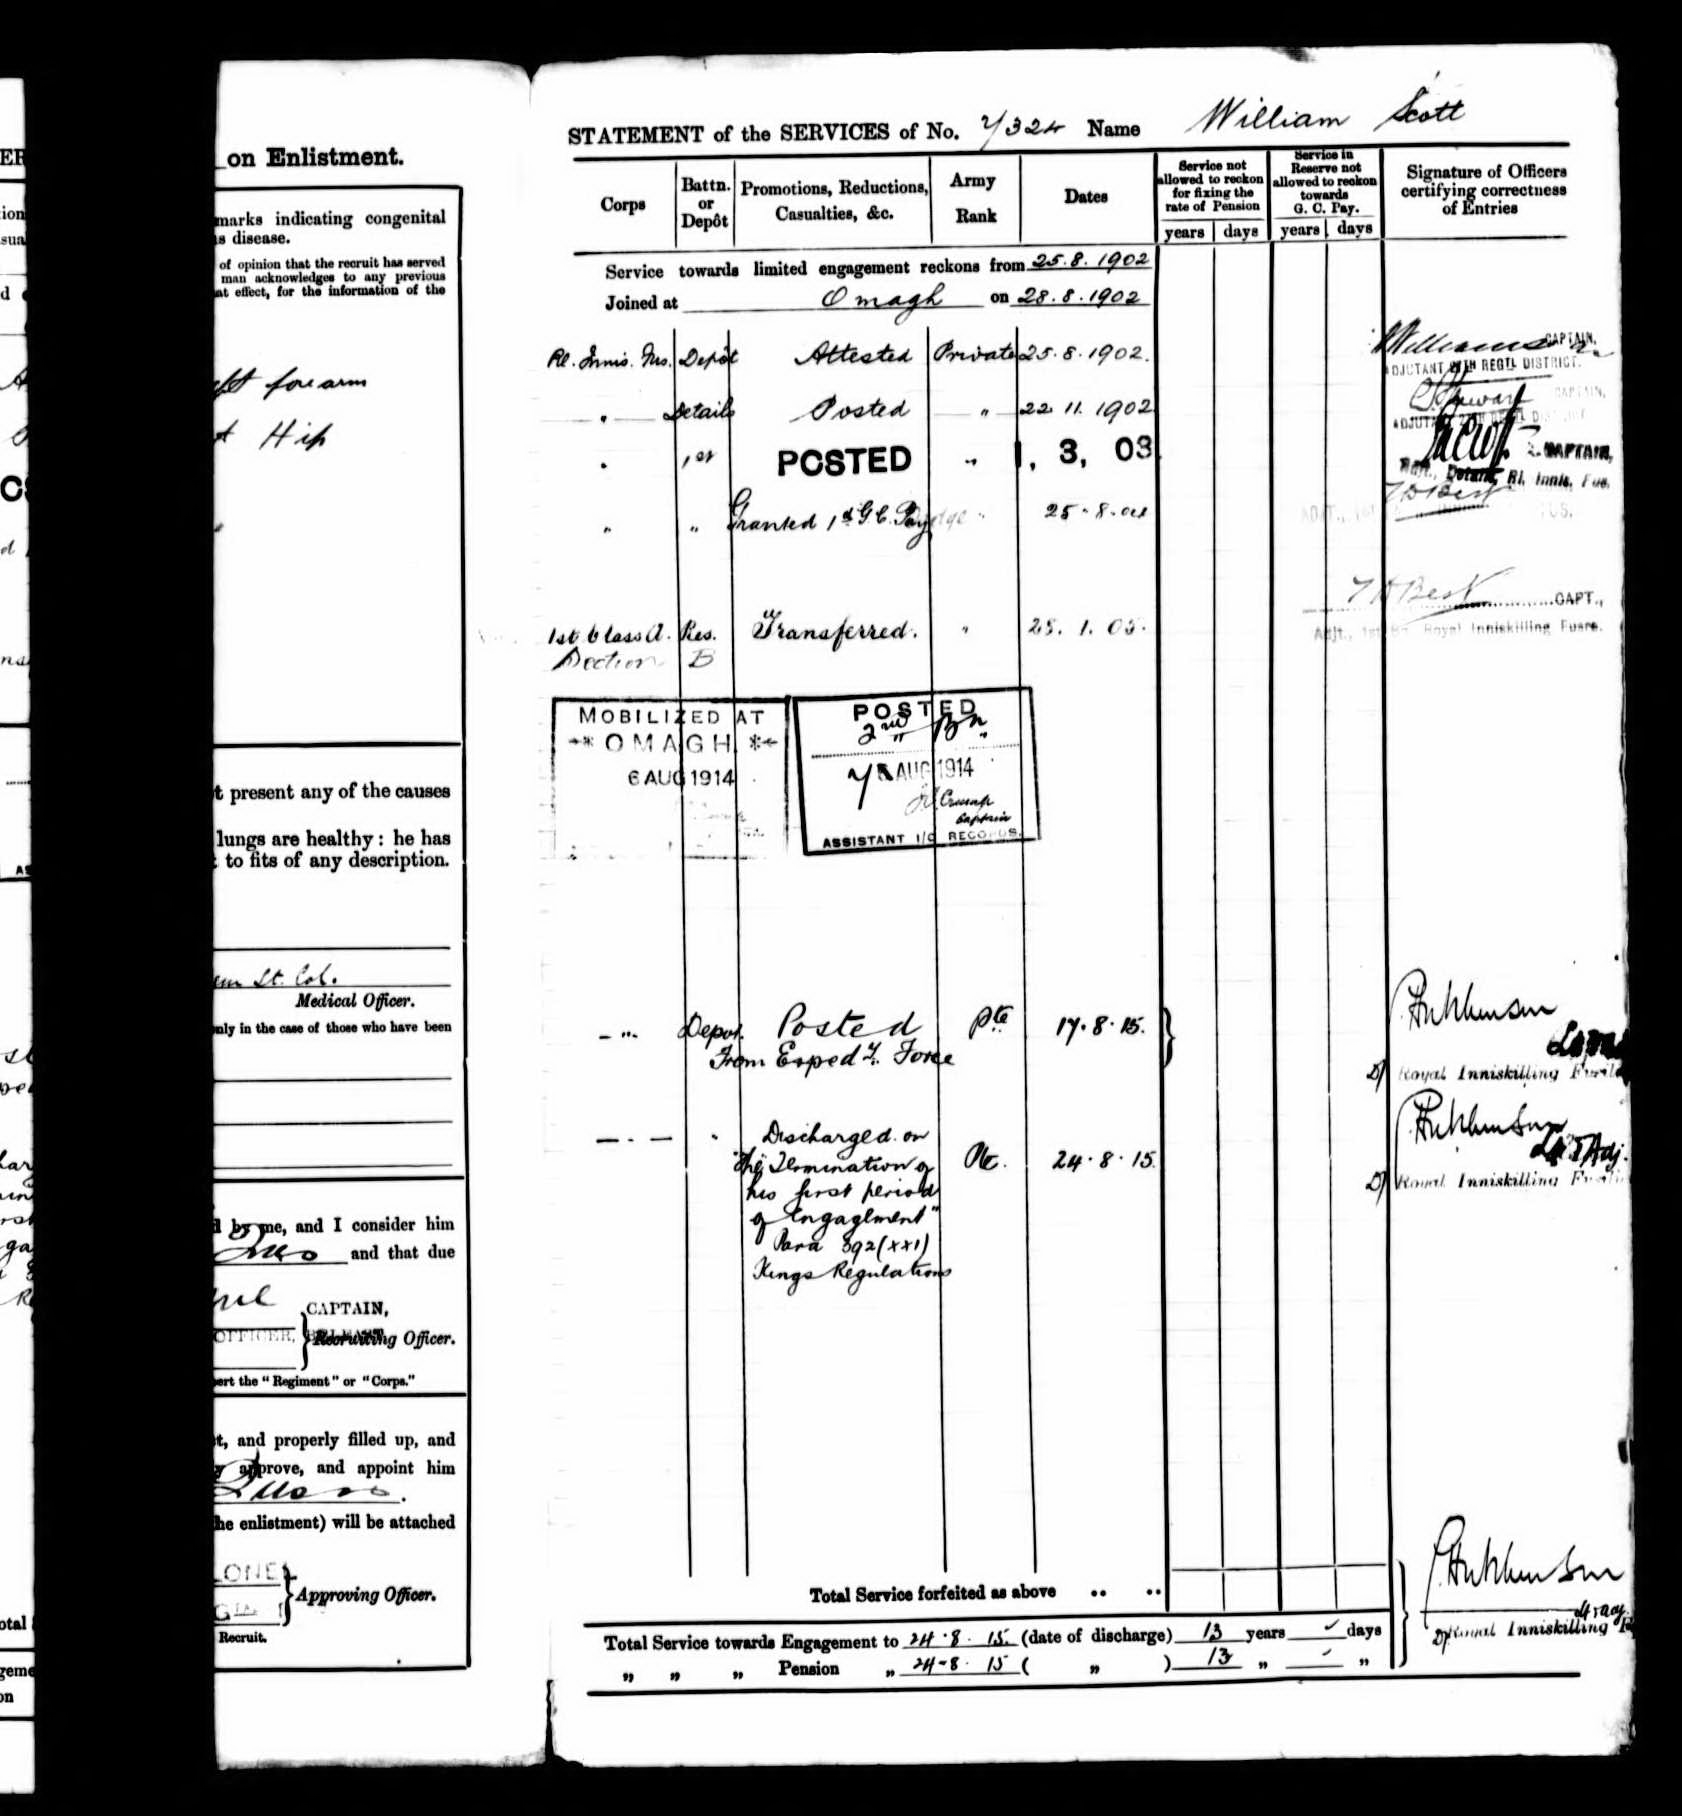 ER
on Enlistment.
marks indicating congenital
s disease.
of opinion that the recruit has served
man acknowledges to any previous
at effect, for the information of the
forearm
Hip
t present any of the causes
lungs are healthy: he has
to fits of any description.
Lt. Col.
Medical Officer.
nly in the case of those who have been
d by me, and I consider him
and that due
CAPTAIN,
OFFICER,
Recruiting Officer.
ert the "Regiment" or "Corps."
t, and properly filled up, and
y approve, and appoint him
he enlistment) will be attached
LONEL
Approving Officer.
Recruit.
STATEMENT of the SERVICES of No. 7324 Name William Scott
Corps
Battn. or Depôt
Promotions, Reductions, Casualties, &c.
Army Rank
Dates
Service not allowed to reckon for fixing the rate of Pension
years days
Service in Reserve not allowed to reckon towards G. C. Pay.
years days
Signature of Officers certifying correctness of Entries
Service towards limited engagement reckons from 25.8.1902
Joined at Omagh on 28.8.1902
Rl. Innis. Fus. Depôt Attested Private 25.8.1902.
CAPTAIN,
ADJUTANT 27TH REGTL DISTRICT.
" Details Posted " 22 11. 1902
CAPTAIN,
" 1st POSTED " 1, 3, 03
CAPTAIN,
Adjt., Details, Rl. Innis. Fus.
" " Granted 1st G.C. Pay " 25.8.04
T D Best
1st Class A. Res. Transferred. " 25.1.05.
Section B
T D Best CAPT.,
Adjt., 1st Bn. Royal Inniskilling Fusrs.
MOBILIZED AT
OMAGH
6 AUG 1914
POSTED
2nd Bn
7 AUG 1914
Captain
ASSISTANT I/C RECORDS.
- " - Depot. Posted Pte 17.8.15.
From Exped y. Force
Hutchinson
Royal Inniskilling Fusil
Discharged on
"The Termination of Pte. 24.8.15.
his first period
of Engagement"
Para 392(xxi)
Kings Regulations
Hutchinson
Lt & Adj.
Royal Inniskilling Fusil
Total Service forfeited as above .. ..
Total Service towards Engagement to 24.8.15. (date of discharge) 13 years days
" " " Pension " 24-8.15 ( " ) 13 " "
Hutchinson
Royal Inniskilling